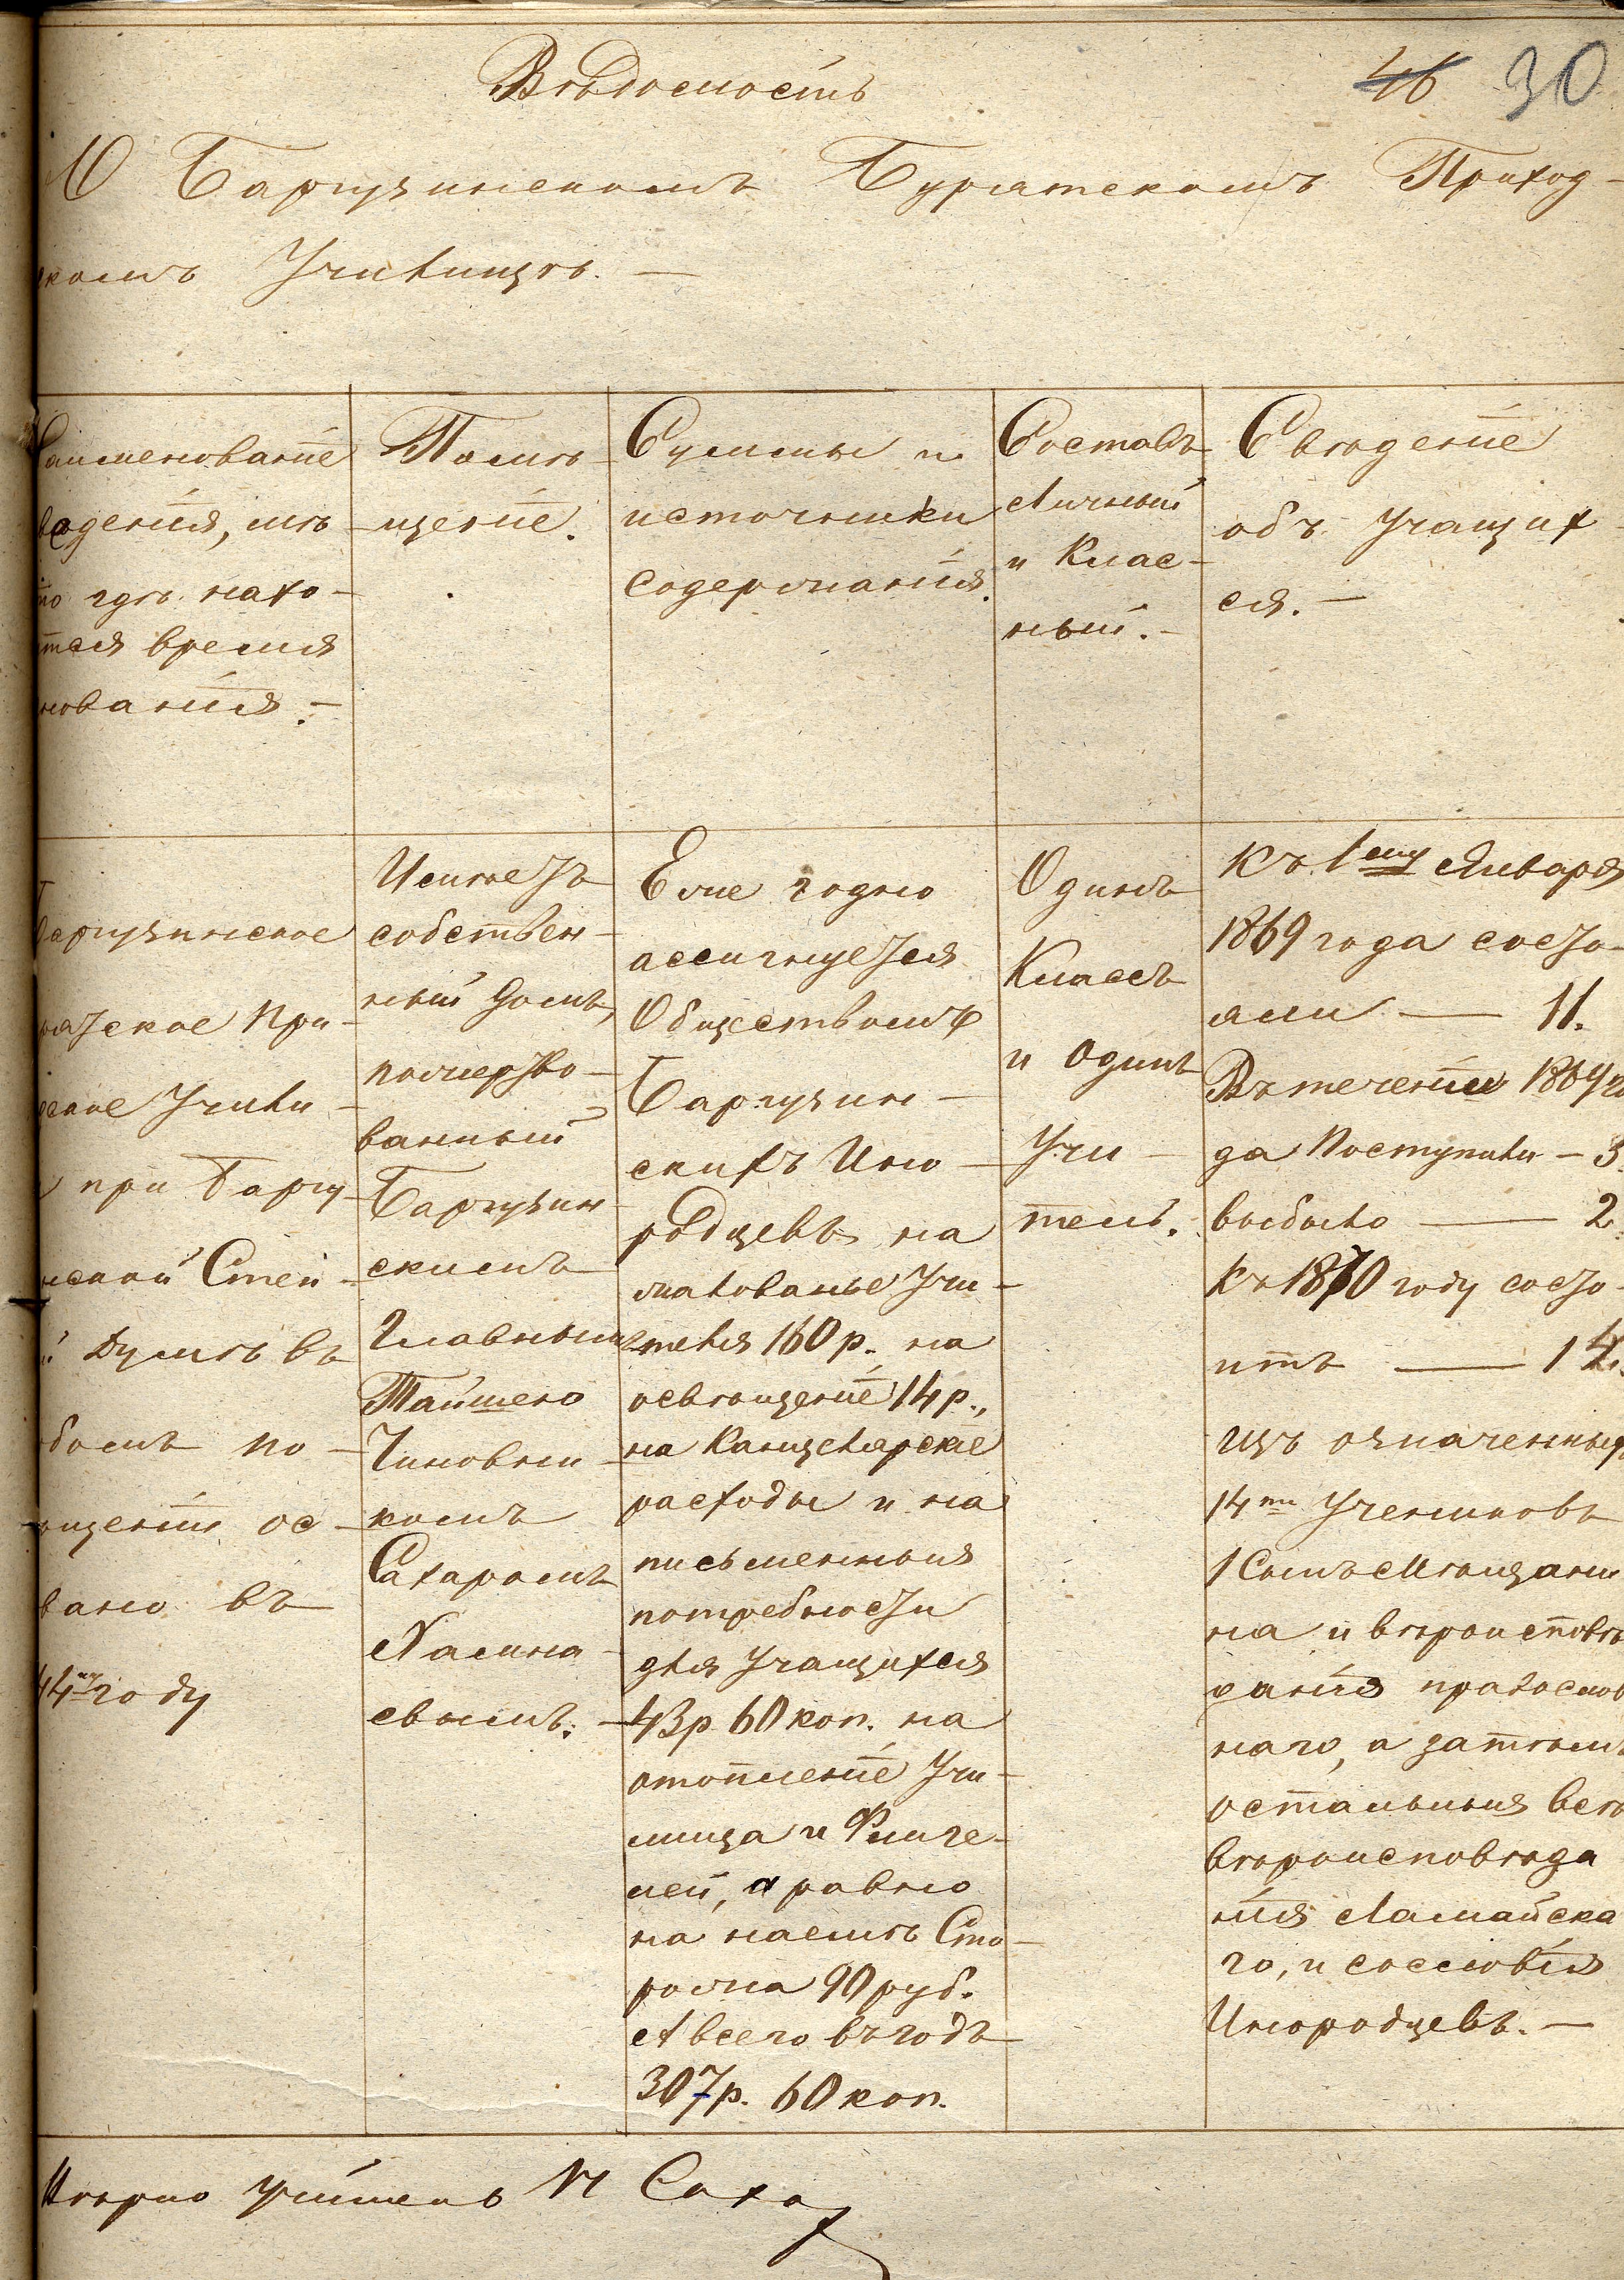 Вѣдомость
46 30
О Баргузинскомъ Бурятскомъ Приход-
скомъ Училищѣ. —
Наименованіе
заведенія, мѣ-
сто гдѣ нахо-
дится время
основанія. —
Помѣ-
щеніе.
Суммы и
источники
содержанія.
Составъ
Личный
и Клас-
ный. —
Свѣденіе
объ учащих
ся. —
Баргузинское
Бурятское При-
ходское Учили-
ще при Баргу-
зинской Степ-
ной Думѣ въ
особомъ по-
мѣщеніи ос-
новано въ
1844мъ году
Имѣетъ
собствен-
ный домъ,
пожертво-
ванный
Баргузин-
скимъ
Главнымъ
Тайшею
Чиновни-
комъ
Сахаромъ
Хамна-
евымъ. —
Еже годно
ассигнуется
Обществомъ
Баргузин-
скихъ Ино-
родцевъ на
жалованье Учи-
теля 160 р. на
освѣщеніе 14 р.,
на Канцелярскіе
расходы и на
письменныя
потребности
для Учащихся
43 р 60 коп. на
отопленіе Учи-
лища и Флиге-
лей, а равно
на наемъ Сто-
рожа 90 руб.
А всего въ годъ
307 р. 60 коп.
Одинъ
Классъ
и Одинъ
Учи-
тель.
Къ 1му Января
1869 года состо-
яли — 11.
Въ теченіи 1869 го
да Поступили — 3
выбыло — 2
Къ 1870 году состо-
итъ — 12.
Изъ означенныхъ
14ти Учениковъ
1 Сынъ Мѣщани
на и вѣроисповѣ
данія православ
наго, а затѣмъ
остальныя всѣ
вѣроисповѣда
нія Ламайска
го, и сословія
Инородцевъ. —
Вѣрно учитель Н Саха